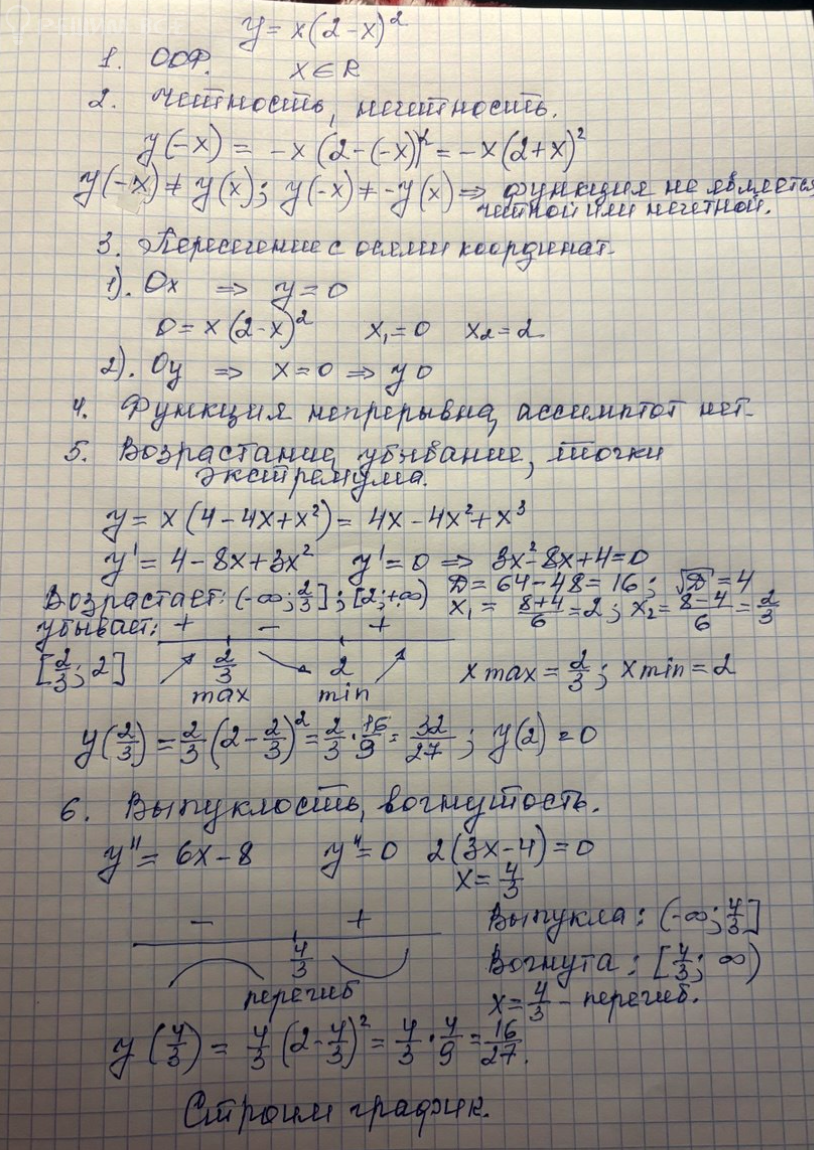 y = x(2-x)²
1. ООФ. x∈R
2. Четность, нечетность.
y(-x) = -x(2-(-x))² = -x(2+x)²
y(-x) ≠ y(x); y(-x) ≠ -y(x) ⇒ функция не является
четной или нечетной.
3. Пересечение с осями координат.
1). Ox ⇒ y = 0
0 = x(2-x)² x₁=0 x₂=2
2). Oy ⇒ x = 0 ⇒ y 0
4. Функция непрерывна, ассимптот нет.
5. Возрастание, убывание, точки
экстремума.
y = x(4-4x+x²) = 4x-4x²+x³
y' = 4-8x+3x² y'=0 ⇒ 3x²-8x+4=0
Возрастает: (-∞; 2/3]; [2; +∞) D = 64-48 = 16; √D = 4
убывает: + - + x₁ = (8+4)/6 = 2; x₂ = (8-4)/6 = 2/3
[2/3; 2] 2/3 2 x max = 2/3; x min = 2
max min
y(2/3) = 2/3(2-2/3)² = 2/3·16/9 = 32/27; y(2) = 0
6. Выпуклость, вогнутость.
y'' = 6x-8 y''=0 2(3x-4)=0
x = 4/3
- + Выпукла: (-∞; 4/3]
4/3 Вогнута: [4/3; ∞)
перегиб x = 4/3 - перегиб.
y(4/3) = 4/3(2-4/3)² = 4/3·4/9 = 16/27.
Строим график.